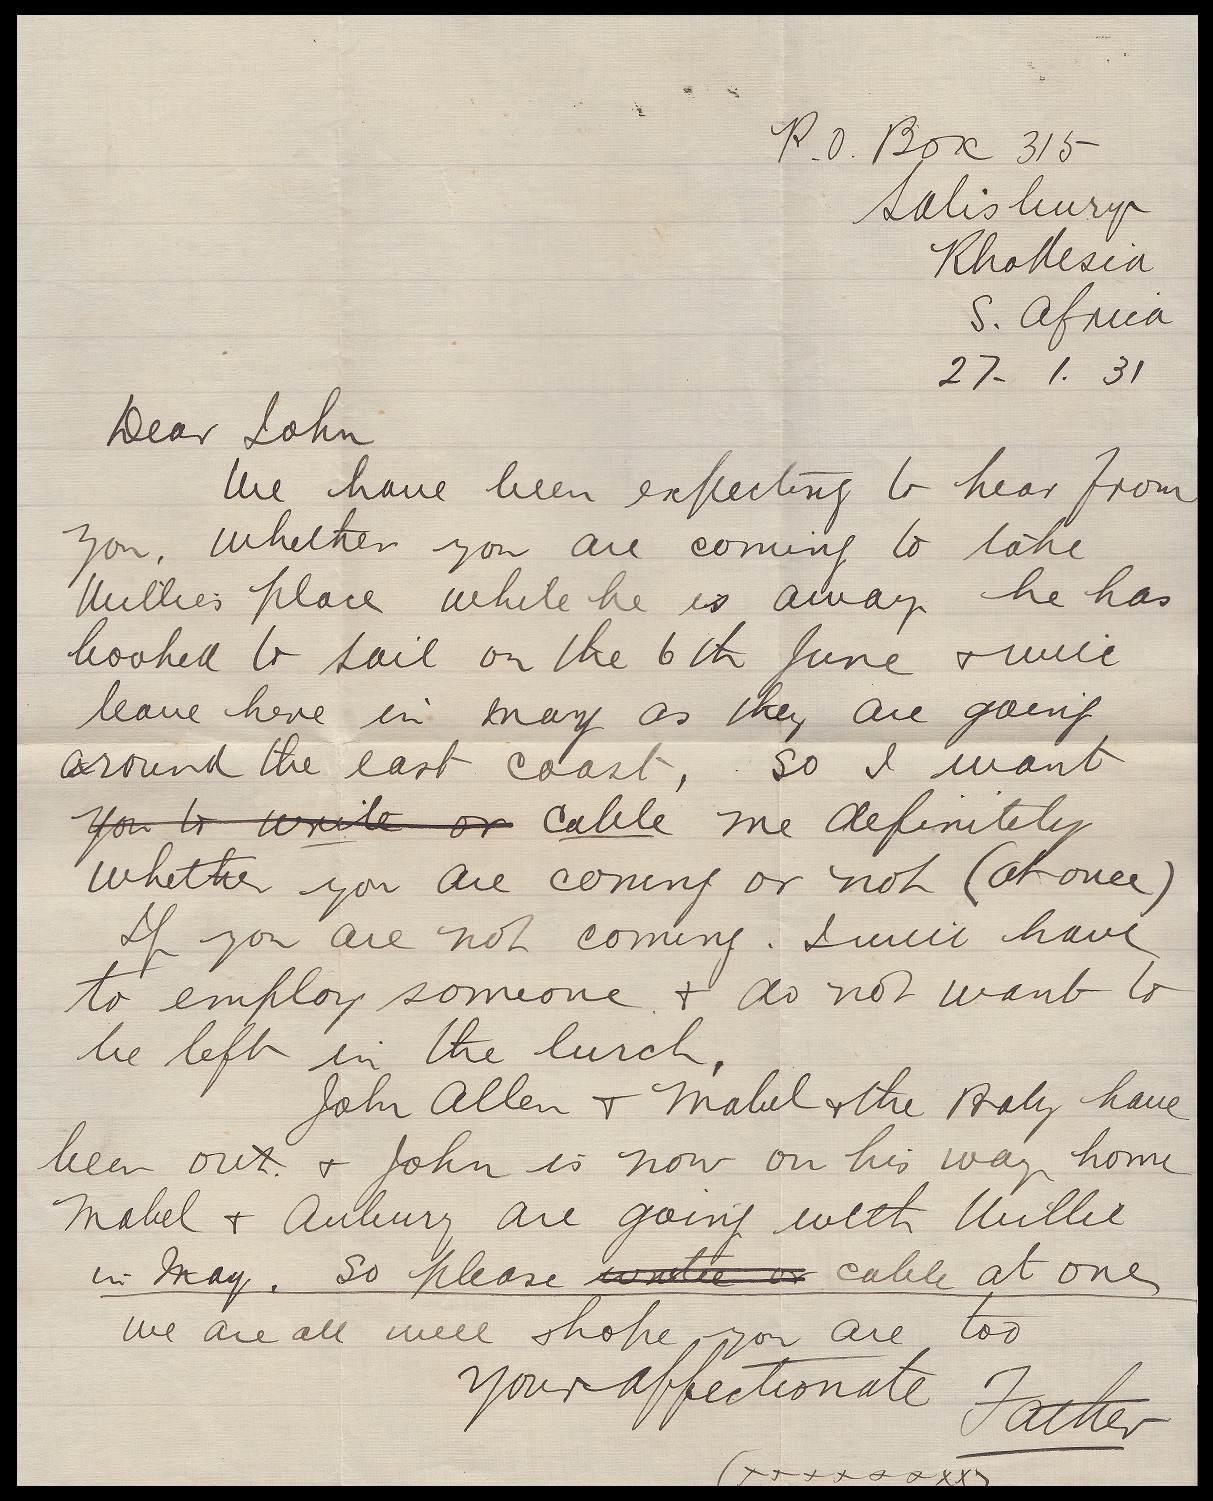 P.O. Box 315
Salisbury
Rhodesia
S. Africa
27- 1. 31
Dear John
We have been expecting to hear from
you, whether you are coming to take
Willies place while he is away he has
booked to sail on the 6th June & will
leave here in May as they are going
around the east coast, so I want
you to write or cable me definitely
whether you are coming or not (at once)
If you are not coming. I will have
to employ someone & do not want to
be left in the lurch,
John Allen & Mabel & the Baby have
been out. & John is now on his way home
Mabel & are going with Willie
in May. So please write or cable at once
we are all well & hope you are too
Your affectionate Father
(xxxxxxxxx)